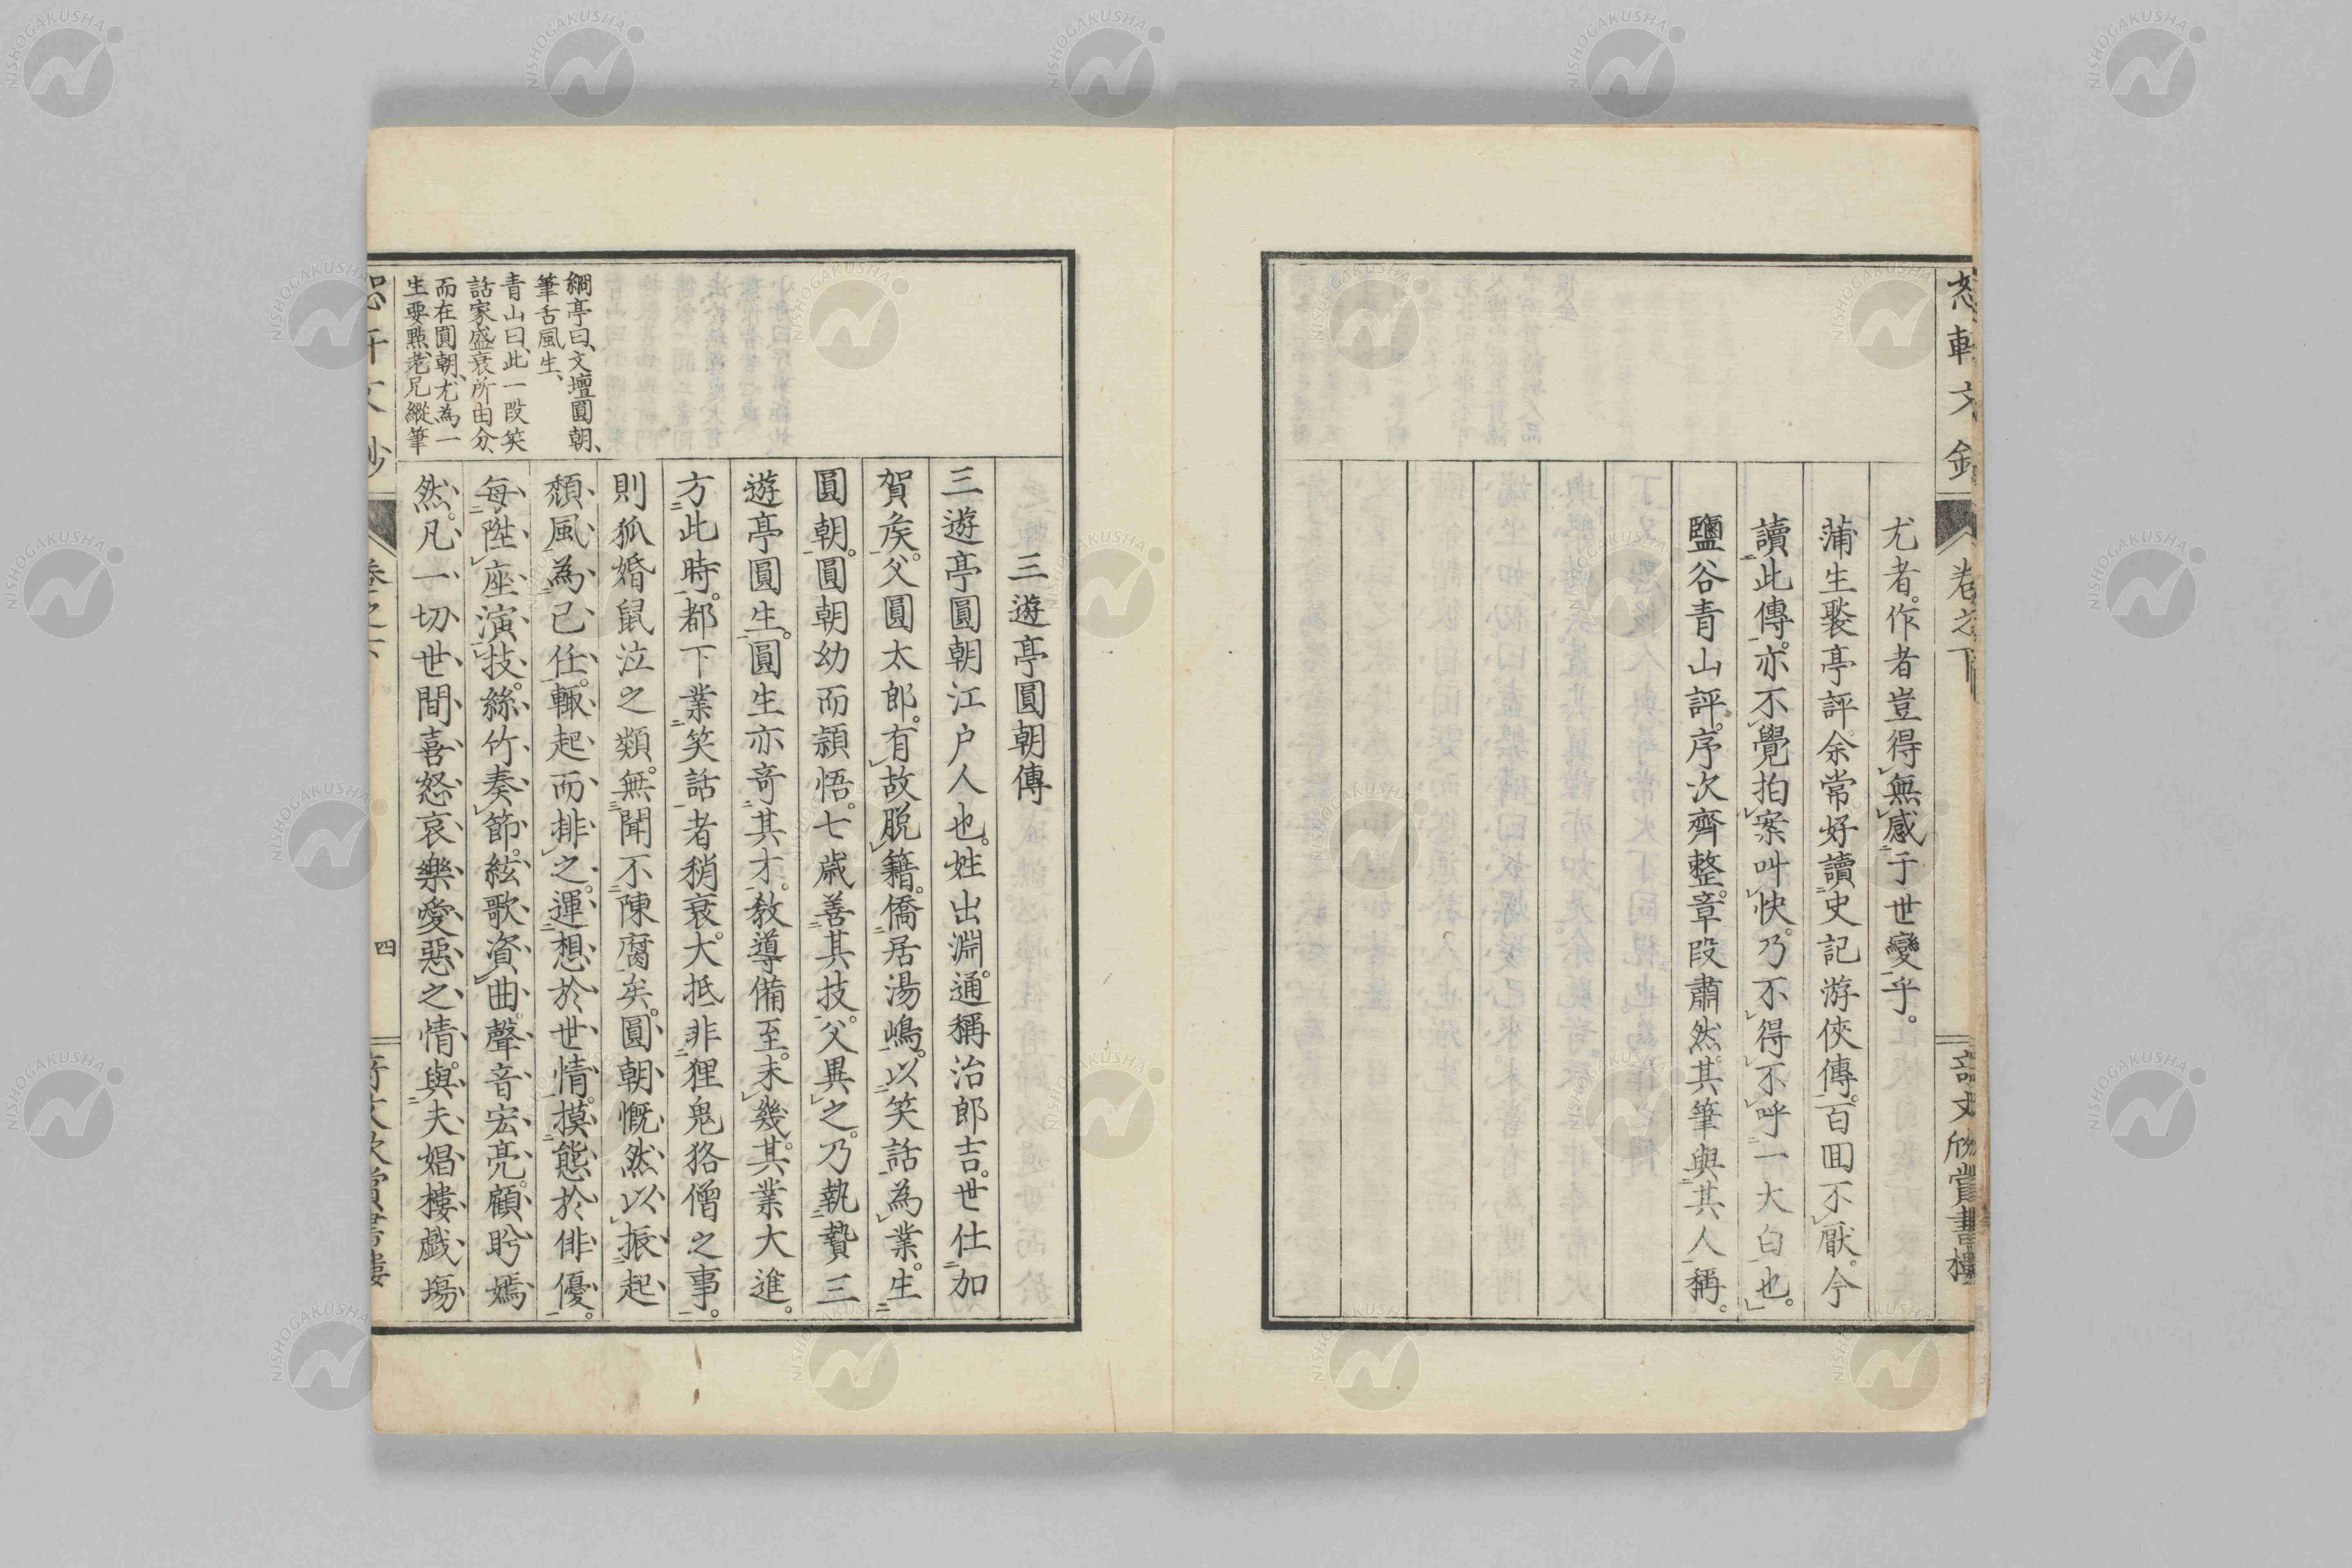 恕軒文鈔
卷之下
奇文欣賞書樓
尤者。作者豈得無感于世變乎。
蒲生褧亭評余常好讀史記游俠傳。百囬不厭。今
讀此傳。亦不覺拍案叫快。乃不得不呼一大白也。
鹽谷青山評。序次齊整。章段肅然。其筆與其人稱。
三遊亭圓朝傳
三遊亭圓朝江戶人也。姓出淵。通稱治郎吉。世仕加
賀矦。父圓太郎。有故脫籍。僑居湯嶋。以笑話為業。生
圓朝。圓朝幼而頴悟。七歲善其技。父異之。乃執贄三
遊亭圓生。圓生亦竒其才。敎導備至。未幾。其業大進。
方此時。都下業笑話者稍衰。大抵非狸鬼狢僧之事。
則狐婚鼠泣之類。無聞不陳腐矣。圓朝慨然以振起
頹風為己任。輙起而排之。運想於世情。摸態於俳優。
每陞座演技。絲竹奏節。絃歌資曲。聲音宏亮。顧眄嫣
然。凡一切世間喜怒哀樂愛惡之情。與夫娼樓戯塲
絅亭曰、文壇圓朝、
筆舌風生、
青山曰、此一段笑
話家盛衰所由分、
而在圓朝、尤為一
生要㸃、老兄縱筆
恕軒文鈔
卷之下
四
奇文欣賞書樓
NISHOGAKUSHA